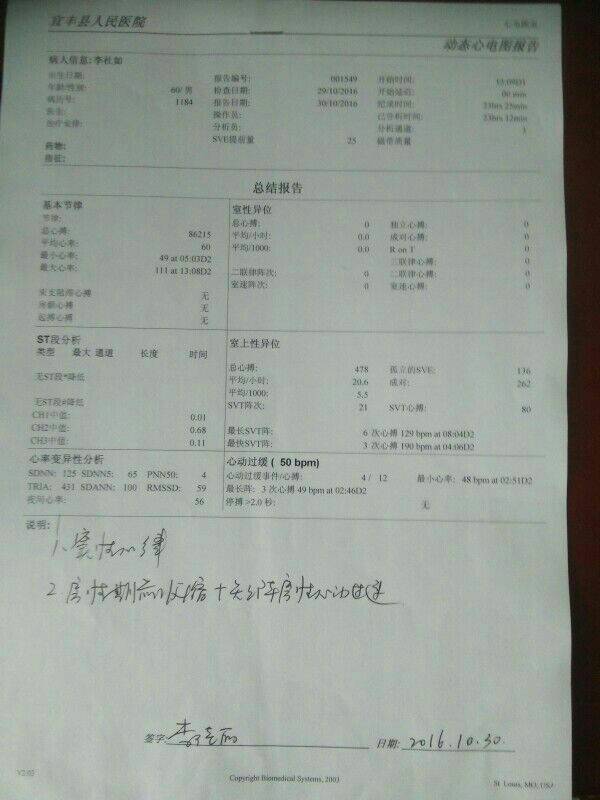 宜丰县人民医院
动态心电图报告
病人信息: 李杜如
出生日期: 报告编号: 001549 开始时间:
年龄/性别: 60/ 男 检查日期: 29/10/2016 开始延迟: 00 min
病历号: 1184 报告日期: 30/10/2016 纪录时间: 23hrs 25min
医生: 操作员: 已分析时间: 23hrs 12min
治疗安排: 分析员: 分析通道: 1
SVE提前量 25 磁带质量
药物:
指征:
总结报告
基本节律 室性异位
节律: 总心搏: 0 独立心搏: 0
总心搏: 86215 平均/小时: 0.0 成对心搏: 0
平均心率: 60 平均/1000: 0.0 R on T 0
最小心率: 49 at 05:03D2 三联律心搏: 0
最大心率: 111 at 13:08D2 二联律阵次: 0 二联律心搏: 0
室速阵次: 0 室速心搏: 0
束支阻滞心搏 无
房颤心搏 无
起搏心搏 无
ST段分析 室上性异位
类型 最大 通道 长度 时间
总心搏: 478 孤立的SVE: 136
无ST段*降低 平均/小时: 20.6 成对: 262
平均/1000: 5.5
无ST段#降低 SVT阵次: 21 SVT心搏: 80
CH1中值: 0.01
CH2中值: 0.68 最长SVT阵: 6 次心搏 129 bpm at 08:04D2
CH3中值: 0.11 最快SVT阵: 3 次心搏 190 bpm at 04:06D2
心率变异性分析 心动过缓 ( 50 bpm)
SDNN: 125 SDNN5: 65 PNN50: 4 心动过缓事件/心搏: 4 / 12 最小心率: 48 bpm at 02:51D2
TRIA: 431 SDANN: 100 RMSSD: 59 最长阵: 3 次心搏 49 bpm at 02:46D2
夜间心率: 56 停搏 >2.0 秒: 无
说明:
1、窦性心律
2、房性期前收缩 十 短阵房性心动过速
签字: 日期: 2016.10.30.
V2.05 Copyright Biomedical Systems, 2003 St. Louis, MO, USA